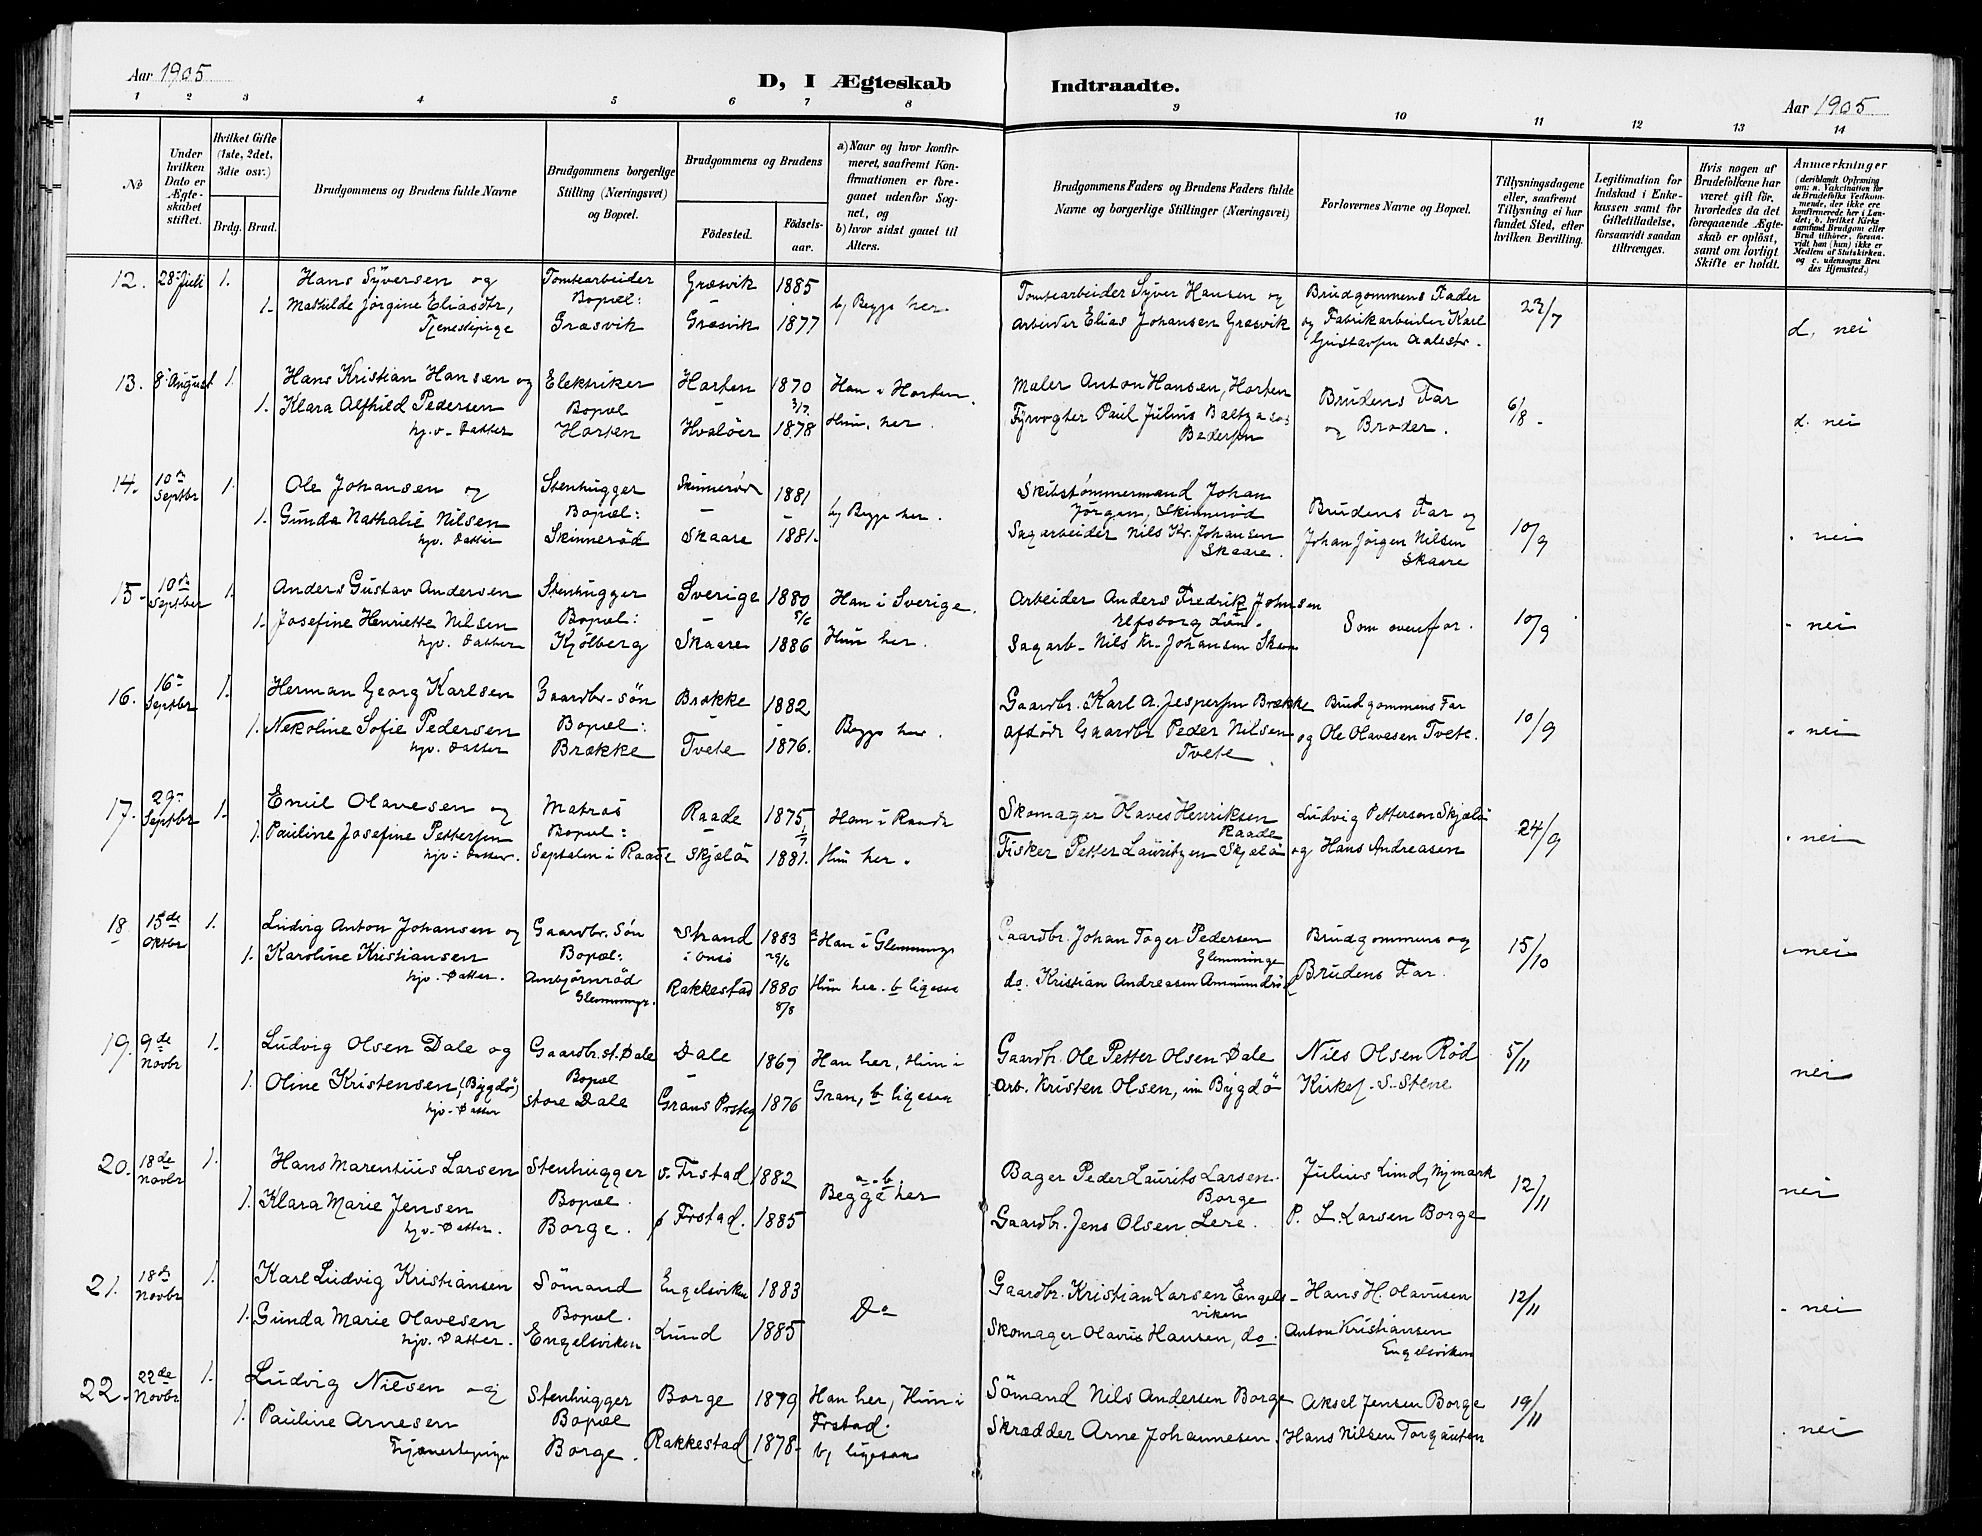 Aar 1905
D, I Ægteskab Indtraadte.
Aar 1905
1 2 3 4 5 6 7 8 9 10 11 12 13 14
No
Under hvilken Dato er Ægte-skabet stiftet.
Hvilket Gifte (1ste, 2det, 3die osv.)
Brdg. Brud.
Brudgommens og Brudens fulde Navne
Brudgommens borgerlige Stilling (Næringsvei) og Bopæl.
Brudgommens og Brudens
Födested. Födsels-aar.
a) Naar og hvor konfir-meret, saafremt Kon-firmationen er fore-gaaet udenfor Sog-net, og b) hvor sidst gaaet til Alters.
Brudgommens Faders og Brudens Faders fulde Navne og borgerlige Stillinger (Næringsvei)
Forlovernes Navne og Bopæl.
Tillysningsdagene eller, saafremt Tillysning ei har fundet Sted, efter hvilken Bevilling.
Legitimation for Indskud i Enke-kassen samt for Giftetilladelse, forsaavidt saadan tiltrænges.
Hvis nogen af Brudefolkene har været gift för, hvorledes da det foregaaende Ægte-skab er oplöst, samt om lovligt Skifte er holdt.
Anmærkninger (deriblandt Oplysning om: a. Vakcination for de Brudefolks Vedkom-mende, der ikke ere konfirmerede her i Lan-det; b. hvilket Kirke samfund Brudgom eller Brud tilhörer, forsaa-vidt han (hun) ikke er Medlem af Statskirken. og c. udensogns Bru des Hjemsted.)
12. 28 Juli 1. Hans Syversen og Tomtearbeider Græsvik 1885
1. Mathilde Jørgine Eliasdtr, Bopæl: b) Begge her.
Tjenestepige Græsvik Græsvik 1877
Tomtearbeider Syver Hansen og Brudgommens Fader 23/7
Arbeider Elias Johansen Græsvik og Fabrikarbeider Karl
Gustavsen d, nei
13. 8 August 1. Hans Kristian Hansen og Elektriker Horten 1870 Han i Horten.
1. Klara Alfhild Pedersen Bopæl 3/7
hj.v. Datter Horten Hvaløer 1878 Hun, her.
Maler Anton Hansen, Horten Brudens Far 6/8
Fyrvogter Paul Julius og Broder. d. nei
Pedersen
14. 10de Septbr 1. Ole Johansen og Stenhugger Skinnerød 1881
1. Gunda Nathalie Nilsen Bopæl: b) Begge her.
hjv. Datter Skinnerød Skaare 1881.
Skibstømmermand Johan
Jørgen, Skinnerød Brudens Far og 10/9
Sagarbeider Nils Kr. Johansen Johan Jörgen Nilsen nei
Skaare. Skaare
15. 10de Septber 1. Anders Gustav Andersen Stenhugger Sverige 1880 Han i Sverige.
1. Josefine Henriette Nilsen Bopæl: 5/6
hjv. Datter Kjölberg Skaare 1886 Hun her.
Arbeider Anders Fredrik Johnsen
Elfsborg Län. Som ovenfor. 10/9
Sagarb. Nils Kr. Johansen Skaare nei
16. 16de Septbr 1. Herman Georg Karlsen Gaardbr. søn Brække 1882
1. Nekoline Sofie Pedersen Bopæl: Begge her.
hjv. Datter Brække Tvete 1876.
Gaardbr. Karl A. Jespersen Brække Brudgommens Far 10/9
Afdøde Gaardbr Peder Nilsen og Ole Olavesen Tvete. nei
Tvete
17. 29de Septbr 1. Emil Olavesen og Matros Raade 1875 Han i Raade
1. Pauline Josefine Pettersen Bopæl: 1/7
hjv. Datter. i Raade Skjælø 1881. Hun her.
Skomager Olaves Henriksen Ludvig Pettersen Skjælö 24/9
Raade
Fisker Petter Lauritzen Skjælö og Hans Andreasen nei
18 15de Oktbr 1. Ludvig Anton Johansen og Gaardbr. Søn Strand 1883 a Han i Glemminge
1. Karoline Kristiansen Bopæl: i Onsø 29/6
hjv. Datter. Rakkestad 1880 Hun her. b ligesaa
Glemminge. 8/8
Gaardbr. Johan Toger Pedersen Brudgommens og 15/10
Glemminge
do. Kristian Andreasen Ammundrød Brudens Far. nei
19. 9de Novbr 1. Ludvig Olsen Dale og Gaardbr. st. Dale Dale 1867 Han her, Hun i
1. Oline Kristensen, (Bygdö) Bopæl
hjv. Datter store Dale Grans Prstegj 1876 Gran, b ligesaa
Gaardbr. Ole Petter Olsen Dale Nils Olsen Rød 5/11
arb. Kristen Olsen, Bygdö Kirkes. S. Stene nei
20. 18de Novbr 1. Hans Marentius Larsen Stenhugger v. Frstad 1882 a-b.
1. Klara Marie Jensen Bopæl. Begge her
hjv. Datter. Borge. Frstad. 1885
Bager Peder Laurits Larsen. Julius Lind, Nymark 12/11
Borge
Gaardbr. Jens Olsen Lere. P. L. Larsen Borge nei
21. 18de Novbr 1. Karl Ludvig Kristiansen Sömand Engelsviken 1883
1. Gunda Marie Olavesen Bopæl. Do
hjv. Datter. Engelsviken Lund 1885
Gaardbr. Kristian Larsen Engels- Hans H. Olavesen 12/11
viken
Skomager Olavus Hansen, do. Anton Kristiansen nei
Engelsviken
22. 22de Novbr 1. Ludvig Nilsen og Stenhugger Borge 1879 Han her, Hun i
1. Pauline Arnesen Bopæl Frstad.
Tjenestepige Borge. Rakkestad 1878. b) ligesaa
Sömand Nils Andersen Borge Aksel Jensen Borge 19/11
Skrædder Arne Johannesen. Hans Nilsen Torgauten nei